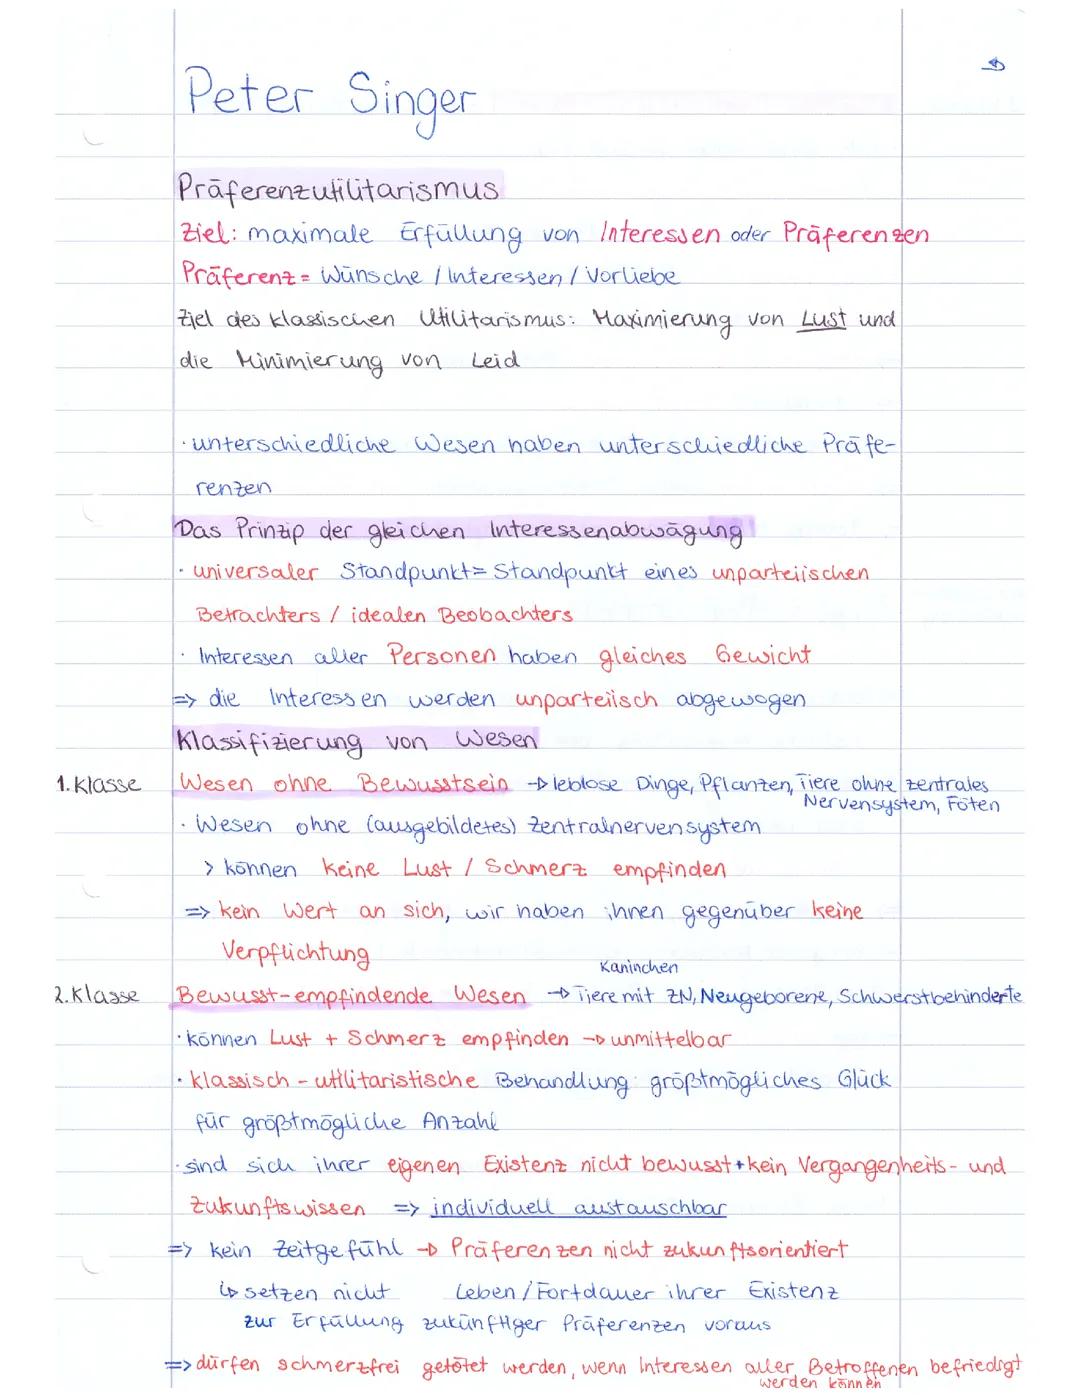 Peter Singer
Präferenzutilitarismus
Ziel: maximale Erfüllung von Interessen oder Präferenzen
Präferenz = Wünsche / Interessen / Vorliebe
Ziel des klassischen Utilitarismus: Maximierung von Lust und
die Minimierung von Leid
· unterschiedliche Wesen haben unterschiedliche Präfe-
renzen
Das Prinzip der gleichen Interessenabwägung
· universaler Standpunkt = Standpunkt eines unparteiischen
Betrachters / idealen Beobachters
· Interessen aller Personen haben gleiches Gewicht
=> die Interessen werden unparteiisch abgewogen
Klassifizierung von Wesen
1. Klasse Wesen ohne Bewusstsein → leblose Dinge, Pflanzen, Tiere ohne zentrales
Nervensystem, Föten
· Wesen ohne (ausgebildetes) Zentralnervensystem
> können keine Lust / Schmerz empfinden
=> kein Wert an sich, wir haben ihnen gegenüber keine
Verpflichtung
Kaninchen
2. Klasse Bewusst-empfindende Wesen → Tiere mit ZN, Neugeborene, Schwerstbehinderte
· können Lust + Schmerz empfinden → unmittelbar
· klassisch-utilitaristische Behandlung: größtmögliches Glück
für größtmögliche Anzahl
· sind sich ihrer eigenen Existenz nicht bewusst + kein Vergangenheits- und
Zukunftswissen => individuell austauschbar
=> kein Zeitgefühl → Präferenzen nicht zukunftsorientiert
↳ setzen nicht Leben / Fortdauer ihrer Existenz
zur Erfüllung zukünftiger Präferenzen voraus
=> dürfen schmerzfrei getötet werden, wenn Interessen aller Betroffenen befriedigt
werden können